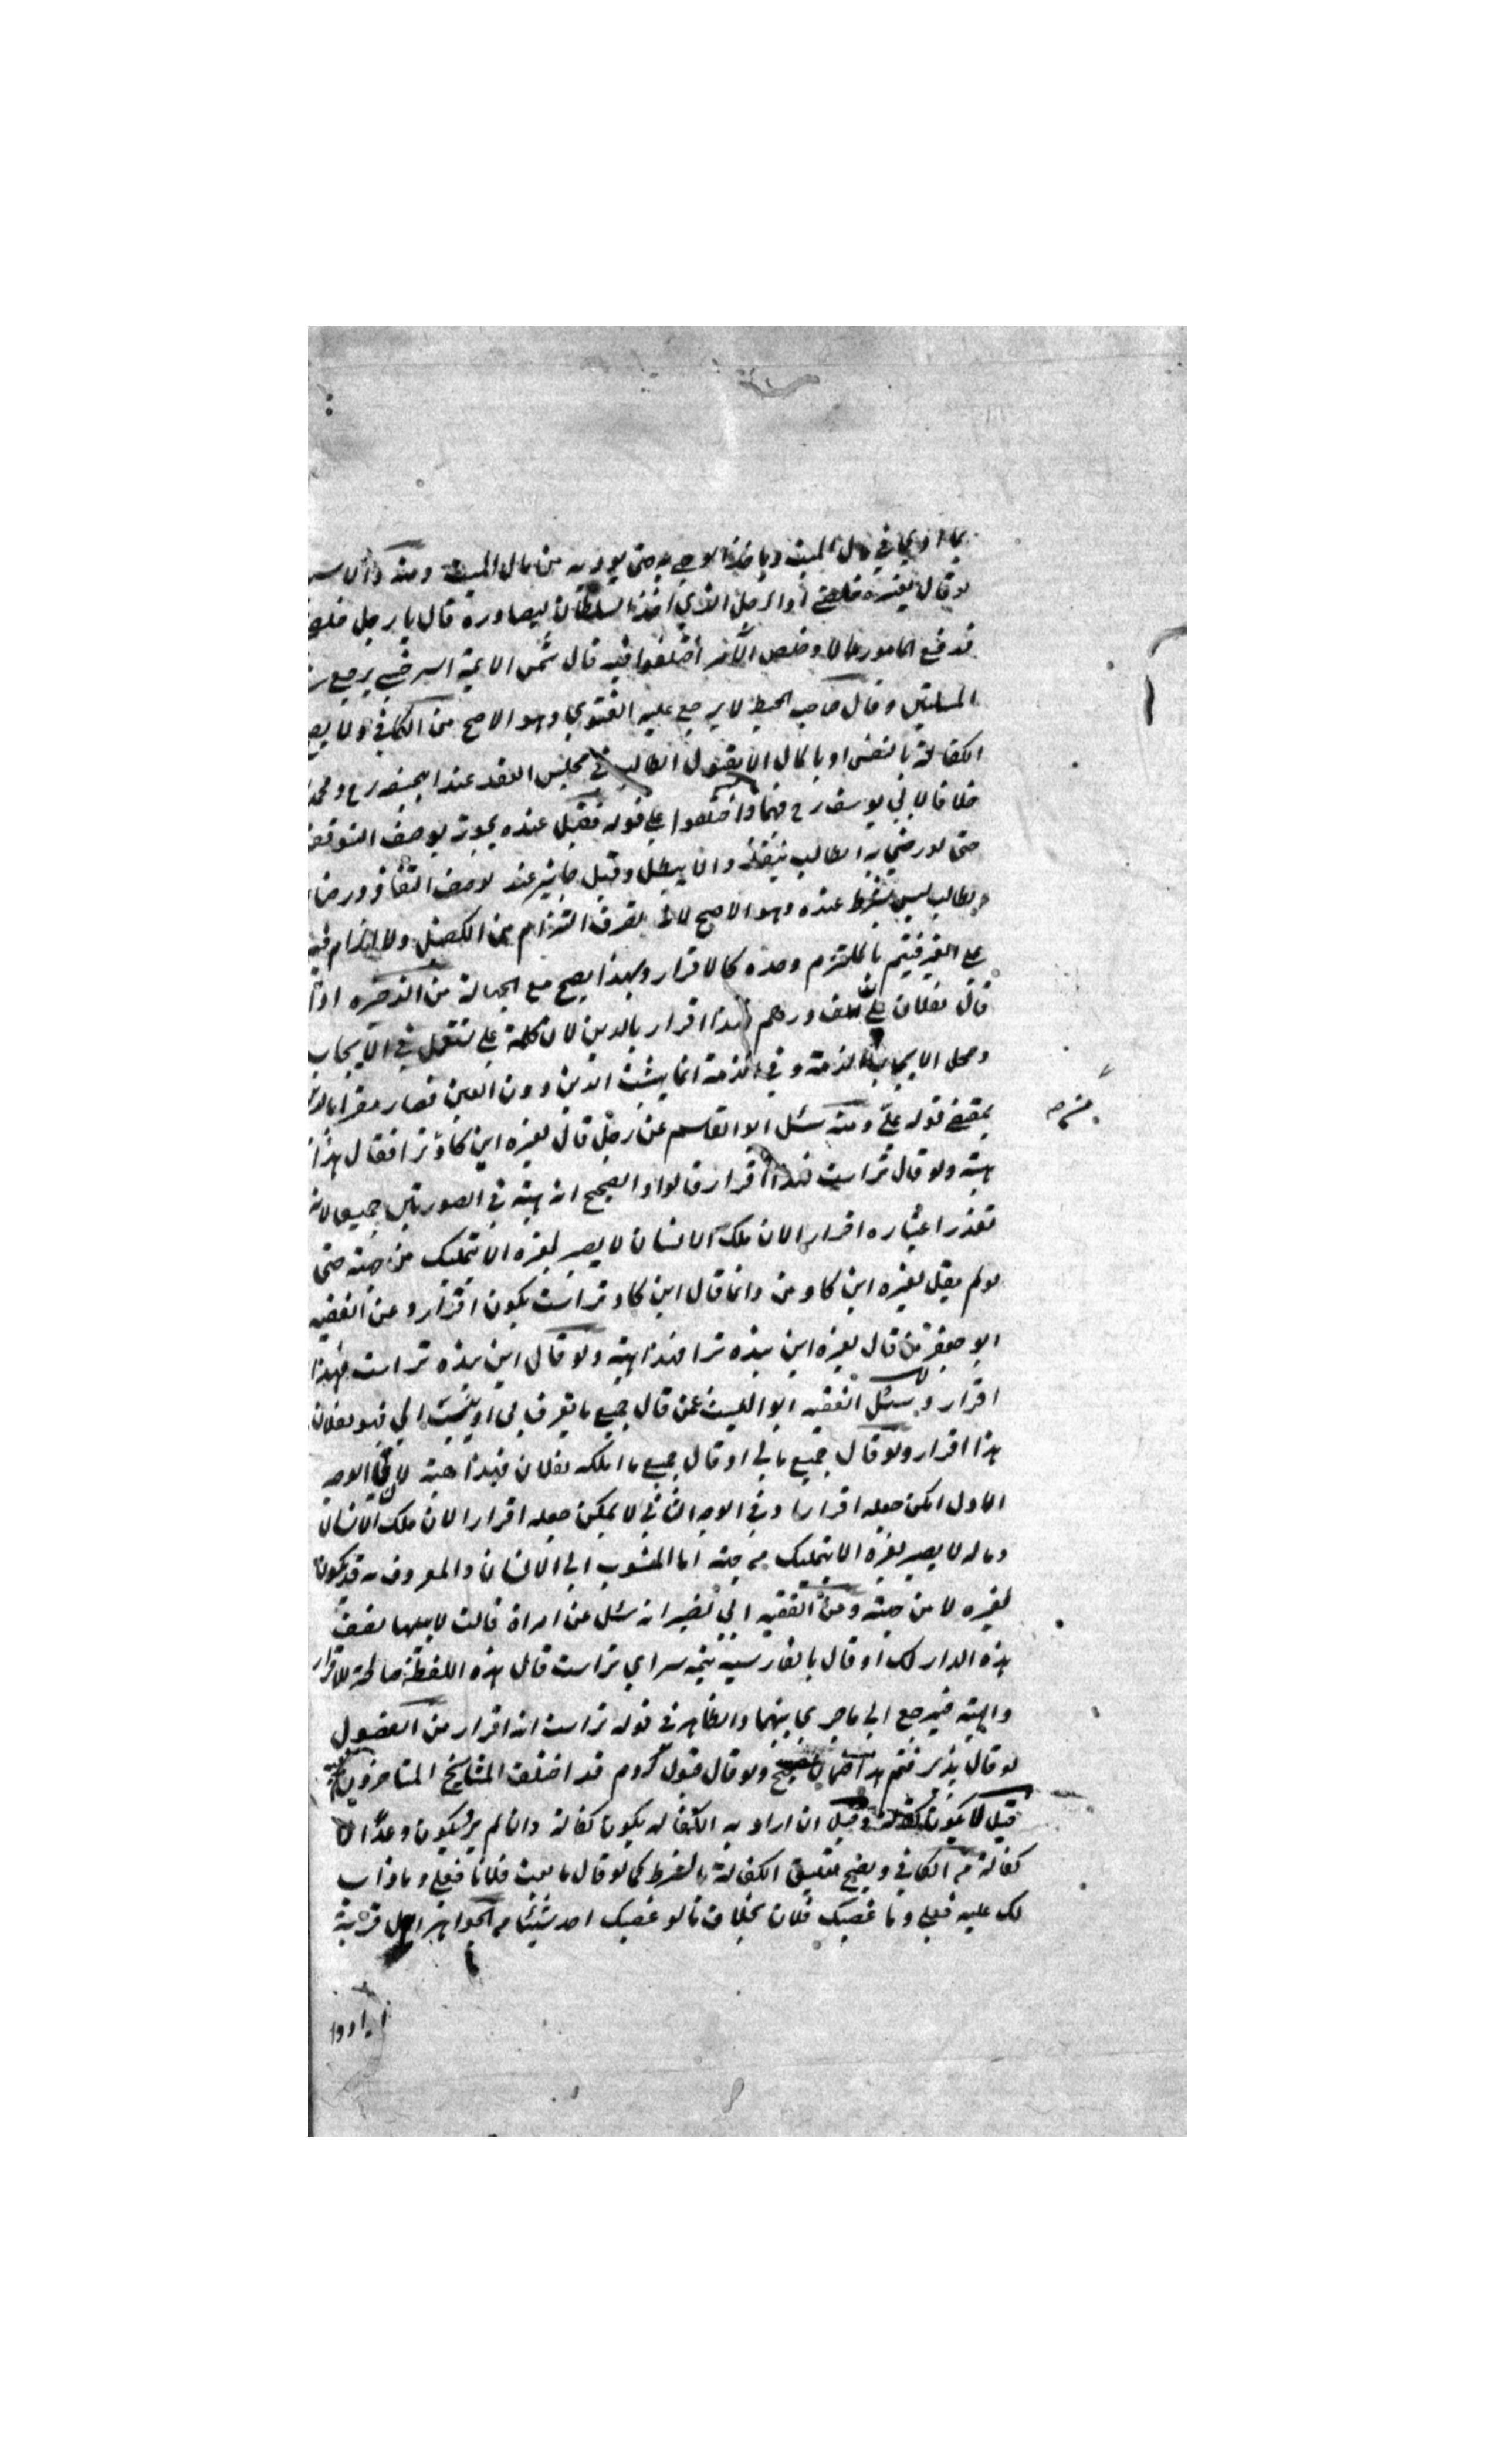 بما ادي في مال الميت وياخذ الوصي به حتى يوديه من مال الميت ومنه والاسير
لو قال لغيره خلصني او الرجل الذي اخذه السلطان ليصادره قال يا رجل خلصني
فدفع المامور مالا وخلص الآمر اختلفوا فيه قال شمس الايمة السرخسي يرجع في
المسلتين وقال صاحب المحيط لا يرجع عليه الفتوي وهو الاصح من الكافي ولا يصح
الكفالة بالنفس او بالمال الا بقبول الطالب في مجلس العقد عند ابيحنيفه رح ومحمد
خلافا لابي يوسف رح فيهما واختلفوا علي قوله فقيل عنده يجوز بوصف التوقف
حتى لو رضي به الطالب ينفذ والا يبطل وقيل جايز عنده بوصف النفاذ ورضاء
الطالب ليس بشرط عنده وهو الاصح لانه تصرف التزام من الكفيل ولا الزام فيه
علي الغير فيتم بالملتزم وحده كالاقرار ولهذا يصح مع الجهالة من الذخيره اذا
قال لفلان علي الف درهم فهذا اقرار بالدين لان كلمة علي تستعمل في الايجاب
ومحل الايجاب الذمة وفي الذمة انما يثبت الدين دون العين فصار مقرا بالدين
بمقتضي قوله علي ومنه سئل ابو القاسم عن رجل قال لغيره اين كاو ترا فقال هذا
هبة ولو قال تراست فهذا اقرار قالوا والصحيح انه هبة في الصورتين جميعا لانه
تعذر اعتباره اقرارا لان ملك الانسان لا يصير لغيره الا بتمليك من جهته حتى
لو لم يقل لغيره اين كاو من وانما قال اين كاو تراست يكون اقرارا وعن الفقيه
ابو جعفر من قال لغيره اين بنده ترا فهذا هبة ولو قال اين بنده تراست فهذا
اقرار وسئل الفقيه ابو الليث عمن قال جميع ما يعرف بي او ينسب الي فهو لفلان
هذا اقرار ولو قال جميع مالي او قال جميع ما املكه لفلان فهذا هبة لان في الوجه
الاول امكن جعله اقرارا وفي الوجه الثاني لا يمكن جعله اقرارا لان ملك الانسان
وماله لا يصير لغيره الا بتمليك من جهته اما المنسوب الي الانسان والمعروف به قد يكون
لغيره لا من جهته وعن الفقيه ابي نصير انه سئل عن امراة قالت لابنها نصف
هذه الدار لك او قال بالفارسية نيمه سراي تراست قال هذه اللفظة صالحة للاقرار
والهبة فيرجع الي ما جري بينهما والظاهر في قوله تراست انه اقرار من الفصول
لو قال پذيرفتم هذا ضمان صحيح ولو قال قبول كردم قد اختلف المشايخ المتاخرون فيه
قيل لا يكون كفالة وقيل ان اراد به الكفاله يكون كفالة وان لم يرد يكون وعدا لا
كفالة من الكافي ويصح تعليق الكفالة بالشرط كما لو قال ما بعت فلانا فعلي وما ذاب
لك عليه فعلي وما غصبك فلان بخلاف ما لو غصبك احد شيئا من الجواهر اهل قرية